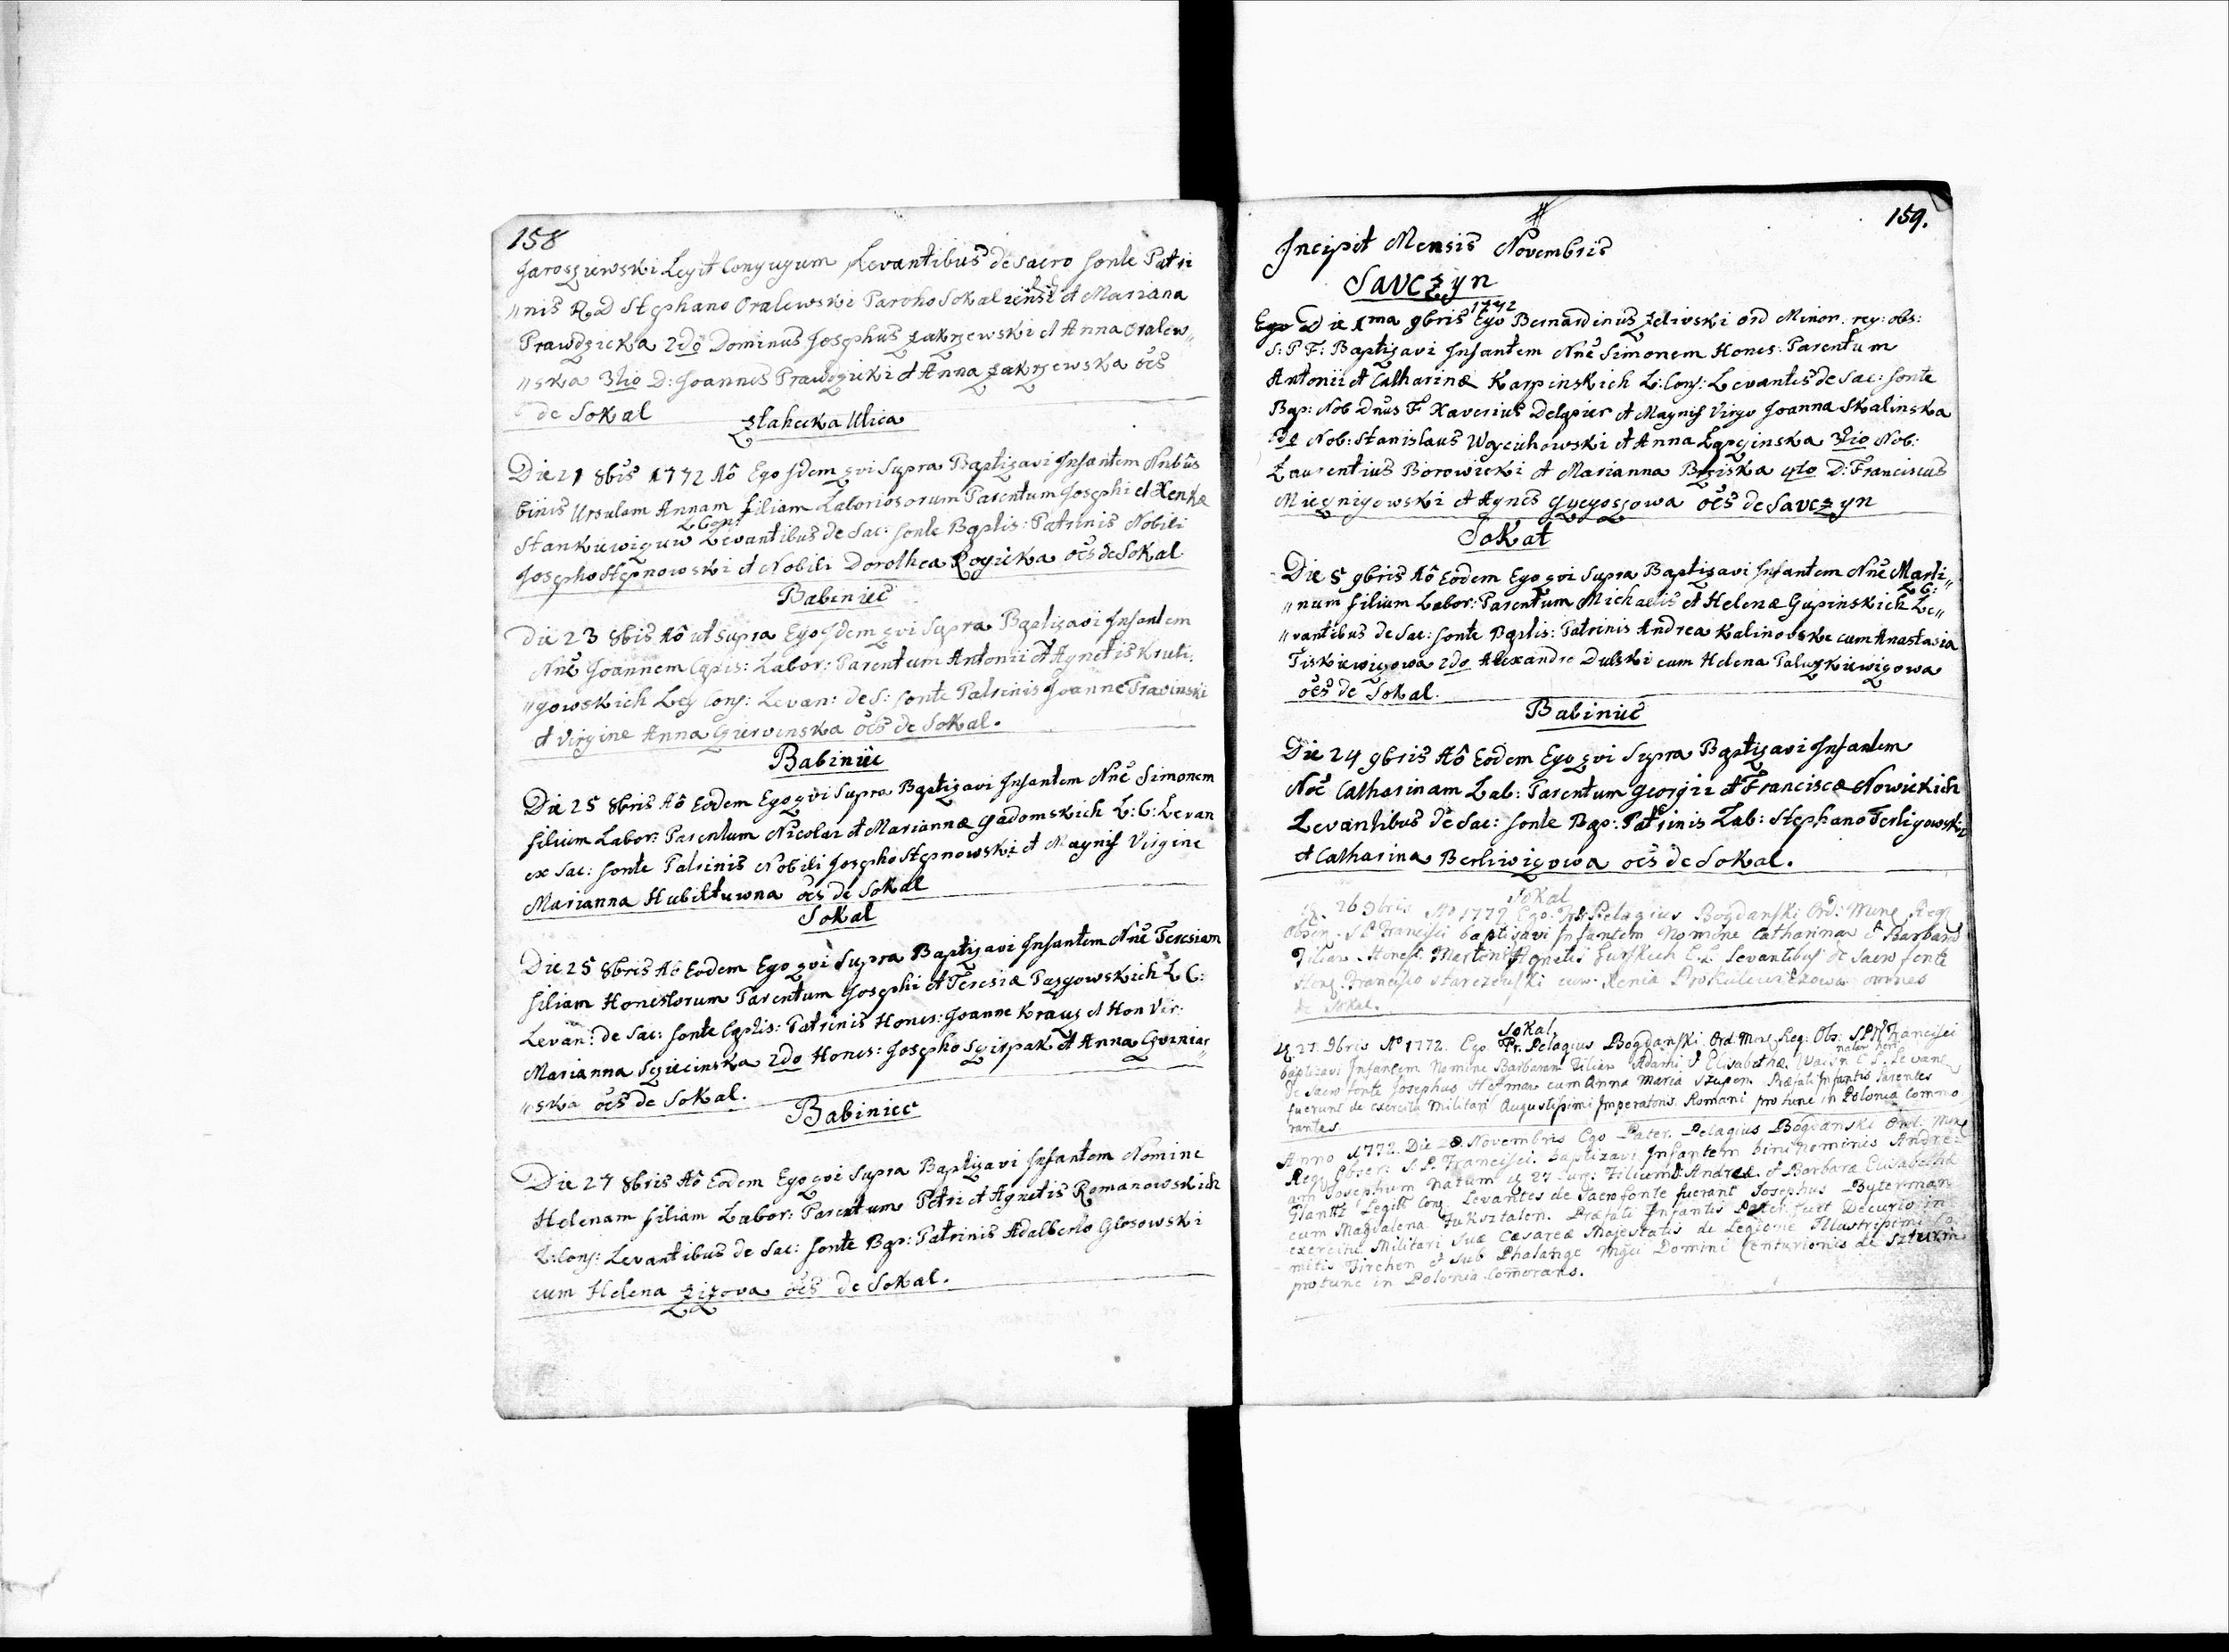 158
Jarosziewski Legit Conyugum Levantibus de Sacro fonte Patri
„nis R D Stephano Oralewski Paroho Sokaliensi et Mariana
Prawdzicka 2do Dominus Josephus Zakrzewski et Anna Oralew„
„ska 3tio D: Joannes Prawdzicki et Anna Zakrzewska oēs
de Sokal
Zlahecka Ulica
Die 21 8bris 1772 Aô Ego Idem qvi Supra Baptizavi Infantem Nnbûs
binis Ursulam Annam filiam Laboriosorum Parentum Josephi et Xenkæ
Stankiewiquw L Con: Levantibus de Sac: fonte Baptis: Patrinis Nobili
Josepho Stepnowski et Nobili Dorothea Rogicka oēs de Sokal
Babiniec
Die 23 8bris Aô ut Supra Ego Idem qvi Supra Baptizavi Infantem
Nnē Joannem Cqptis: Labor: Parentum Antonii et Agnetis Kruti„
„gowskich Leg Conj: Levan: de S: fonte Patrinis Joanne Travinski
et Virgine Anna Gierwenska oēs de Sokal.
Babiniec
Die 25 8bris Aô Eodem Ego qvi Supra Baptizavi Infantem Nnē Simonem
filium Labor: Parentum Nicolai et Mariannæ Gadomskich L: C: Levan
ex Sac: fonte Patrinis Nobili Josepho Stepnowski et Magnif Virgine
Marianna Hubiktuwna oēs de Sokal
Sokal
Die 25 8bris Aô Eodem Ego qvi Supra Baptizavi Infantem Nnē Teresiam
filiam Honestorum Parentum Josephi et Teresiæ Pasgowskich L C:
Levan: de Sac: fonte Cqptis: Patrinis Hones: Joanne Kraus et Hon Vir:
Marianna Sqiecinska 2do Hones: Josepho Sqirpak et Anna Gviniar„
„ska oēs de Sokal.
Babiniec
Die 27 8bris Aô Eodem Ego qvi Supra Baptizavi Infantem Nomine
Helenam filiam Labor: Parentum Petri et Agnetis Romanowskich
L: Conj: Levantibus de Sac: fonte Bap: Patrinis Adalberto Glosowski
cum Helena Zizova oēs de Sokal.
159.
Incipit Mensis Novembris
Savczyn
Die 1ma 9bris 1772 Ego Bernardinus Zelivski Ord Minor. reg: obs:
S: P F: Baptizavi Infantem Nnē Simonem Hones: Parentum
Antonii et Catharinæ Karpinskich L: Conj: Levantes de Sac: fonte
Bap: Nob Dnus F Xaverius Delqpier et Magnif Virgo Joanna Skalinska
2do Nob: Stanislaus Woyciehowski et Anna Lqpginska 3tio Nob:
Laurentius Borowiecki et Marianna Brziska 4to D: Franciscus
Mieqnigowski et Agnes Gregoszowa oēs de Savczyn
Sokal
Die 5 9bris Aô Eodem Ego qvi Supra Baptizavi Infantem Nnē Marti„
„num filium Labor: Parentum Michaelis et Helenæ Gupinskich L C: Le„
„vantibus de Sac: fonte Baptis: Patrinis Andrea Kalinowski cum Anastasia
Tiskiewiqowa 2do Alexandro Dulski cum Helena Paluszkiewiqowa
oēs de Sokal.
Babiniec
Die 24 9bris Aô Eodem Ego qvi Supra Baptizavi Infantem
Noē Catharinam Lab: Parentum Georgii et Franciscæ Nowickich
Levantibus de Sac: fonte Bap: Patrinis Lab: Stephano Terligowski
et Catharina Berliwiqowa oēs de Sokal.
Sokal
26 9bris Aº 1772 Ego Fr: Pelagius Bogdanski Ord: Mino Reg
Obser. S P Francisci baptizavi Infantem Nomine Catharinam et Barbaram
Filiam Honest: Martini et Agnetis Gurskich C. L. Levantibus de Sacro fonte
Hones Francisco Starczewski cum Xenia Prokulewiczowa omnes
de Sokal.
Sokal.
27. 9bris Aº 1772. Ego Fr. Pelagius Bogdanski Ord. Min. Reg: Obs: S.P.N Francisci
baptizavi Infantem Nomine Barbaram Filiam Adami et Elisabethæ. C. L. Levant
de Sacro fonte Josephus Hefman cum Anna Maria Szupen. Præfati Infantis Parentes
fuerunt de exercitu Militari Augustissimi Imperatoris Romani pro tunc in Polonia Commo
rantes.
Anno 1772. Die 28. Novembris Ego Pater Pelagius Bogdanski Ord. Mino
Reg. Obser: S. P. Francisci. Baptizavi Infantem bini Nominis Andre-
am Josephum natum 27 Filium Andreæ et Barbaræ Elisabethæ
Legitt Conj Levantes de Sacro fonte fuerant Josephus Byterman
cum Magdalena Fuksztalen. Præfati Infantis Pater fuit Decurio in
exercitu Militari Suæ Cæsareæ Majestatis de Legione Illustrissimi Co
mitis Virchen et sub Phalange Mgci Domini Centurionis de Szturm
pro tunc in Polonia Commorans.